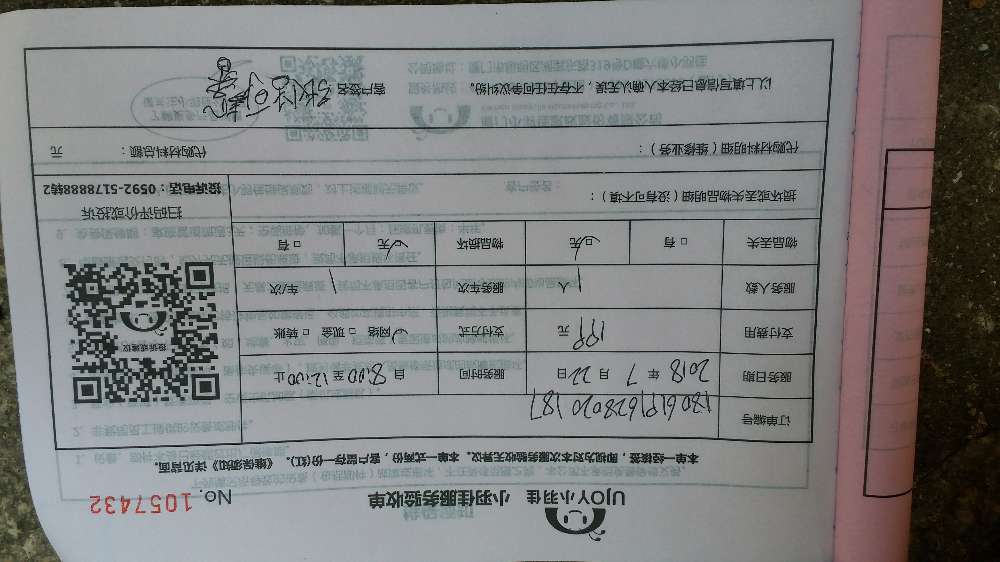 UJOY小羽佳 小羽佳服务验收单
No. 1057432
本单一经核签，即视为对本次服务验收无异议。本单一式两份，客户留存一份(红)。《维保须知》详见背面。
订单编号 1806191628020187
服务日期 2018 年 7 月 22 日 服务时间 自 8:00 至 12:00 止
支付费用 199 元 支付方式 网络 □ 现金 □ 转账
服务人数 1 人 服务车次 1 车/次
物品丢失 □ 有 □ 无 物品损坏 □ 无 □ 有
投诉或建议
扫码评价或投诉
投诉电话：0592-5178888转2
损坏或丢失物品明细（没有可不填）：
代购材料明细（维修业务）： 代购材料总额： 元
以上填写信息已经本人确认无误，不存在任何争议纠纷。 客户签名